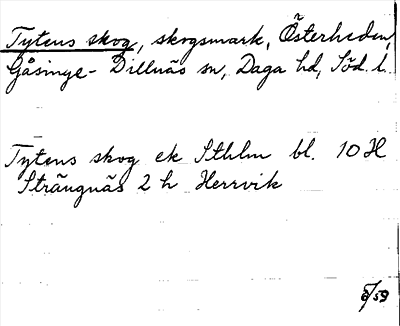 Tytens skog, skogsmark, Österheden,
Gåsinge-Dillnäs sn, Daga hd, Söd. l.
Tytens skog ek Sthlm bl. 10 H
Strängnäs 2 h Herrvik
/59